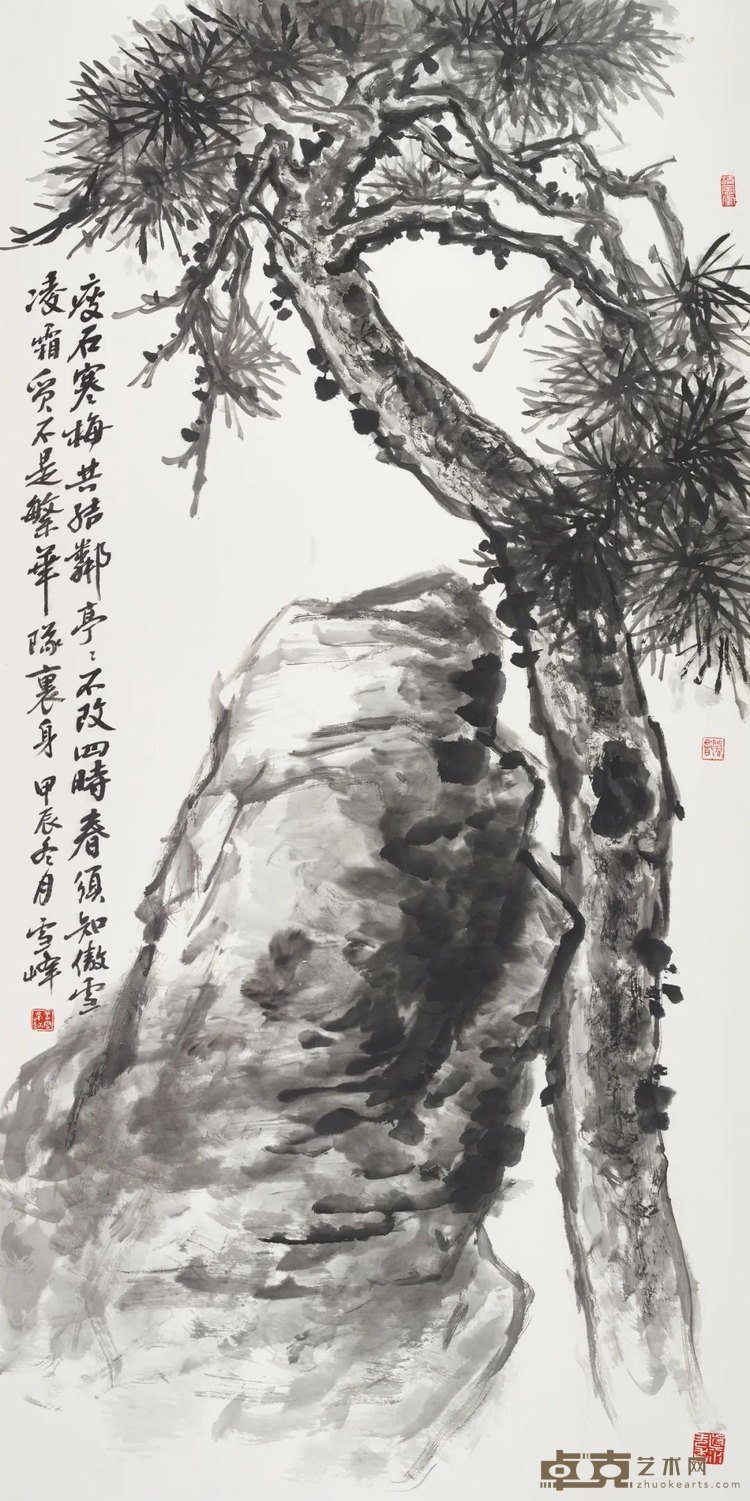 瘦石寒梅共結鄰亭〻不改四時春須知傲雪
凌霜質不是繁華隊裏身 甲辰冬月 雪峰
卓克艺术网
zhuokearts.com